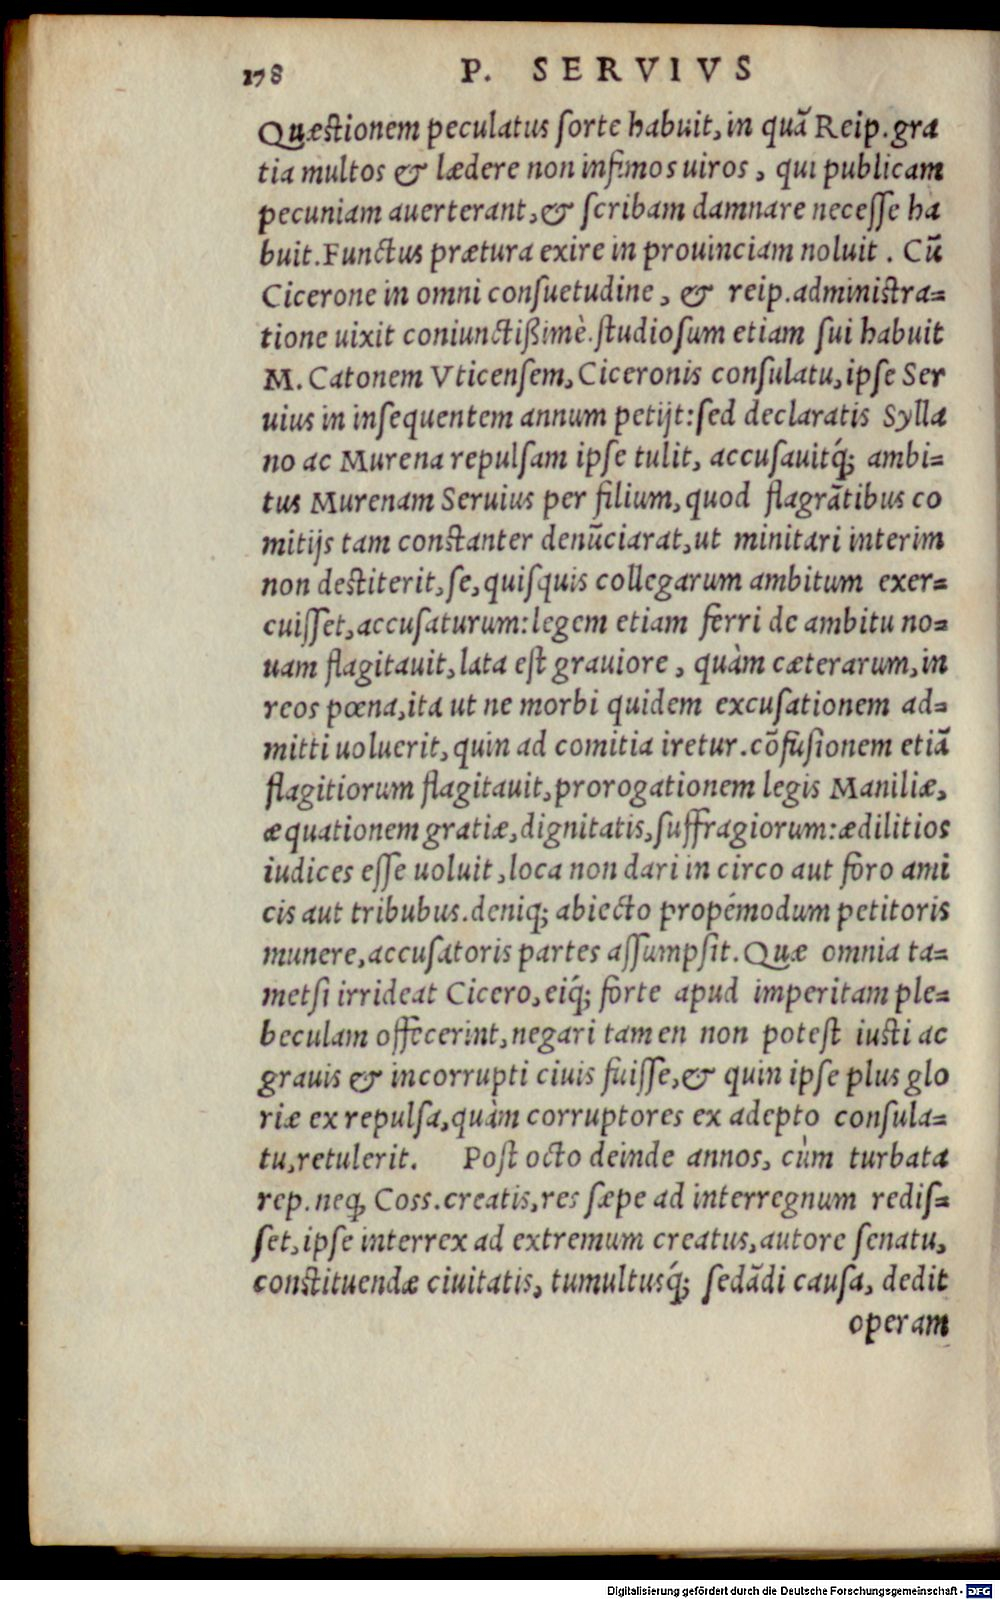 178 P. SERVIVS
Quæstionem peculatus sorte habuit, in quā Reip. gra
tia multos & lædere non infimos uiros, qui publicam
pecuniam auerterant, & scribam damnare necesse ha
buit. Functus prætura exire in prouinciam noluit. Cū
Cicerone in omni consuetudine, & reip. administra=
tione uixit coniunctißimè. studiosum etiam sui habuit
M. Catonem Vticensem, Ciceronis consulatu, ipse Ser
uius in insequentem annum petijt: sed declaratis Sylla
no ac Murena repulsam ipse tulit, accusauitq́; ambi=
tus Murenam Seruius per filium, quod flagrātibus co
mitijs tam constanter denūciarat, ut minitari interim
non destiterit, se, quisquis collegarum ambitum exer=
cuisset, accusaturum: legem etiam ferri de ambitu no=
uam flagitauit, lata est grauiore, quàm cæterarum, in
reos pœna, ita ut ne morbi quidem excusationem ad=
mitti uoluerit, quin ad comitia iretur. cōfusionem etiā
flagitiorum flagitauit, prorogationem legis Maniliæ,
æquationem gratiæ, dignitatis, suffragiorum: ædilitios
iudices esse uoluit, loca non dari in circo aut foro ami
cis aut tribubus. deniq; abiecto propémodum petitoris
munere, accusatoris partes assumpsit. Quæ omnia ta=
metsi irrideat Cicero, eiq́; forte apud imperitam ple=
beculam offecerint, negari tamen non potest iusti ac
grauis & incorrupti ciuis fuisse, & quin ipse plus glo
riæ ex repulsa, quàm corruptores ex adepto consula=
tu, retulerit. Post octo deinde annos, cùm turbata
rep. neq; Coss. creatis, res sæpe ad interregnum redis=
set, ipse interrex ad extremum creatus, autore senatu,
constituendæ ciuitatis, tumultusq́; sedādi causa, dedit
operam
Digitalisierung gefördert durch die Deutsche Forschungsgemeinschaft - DFG